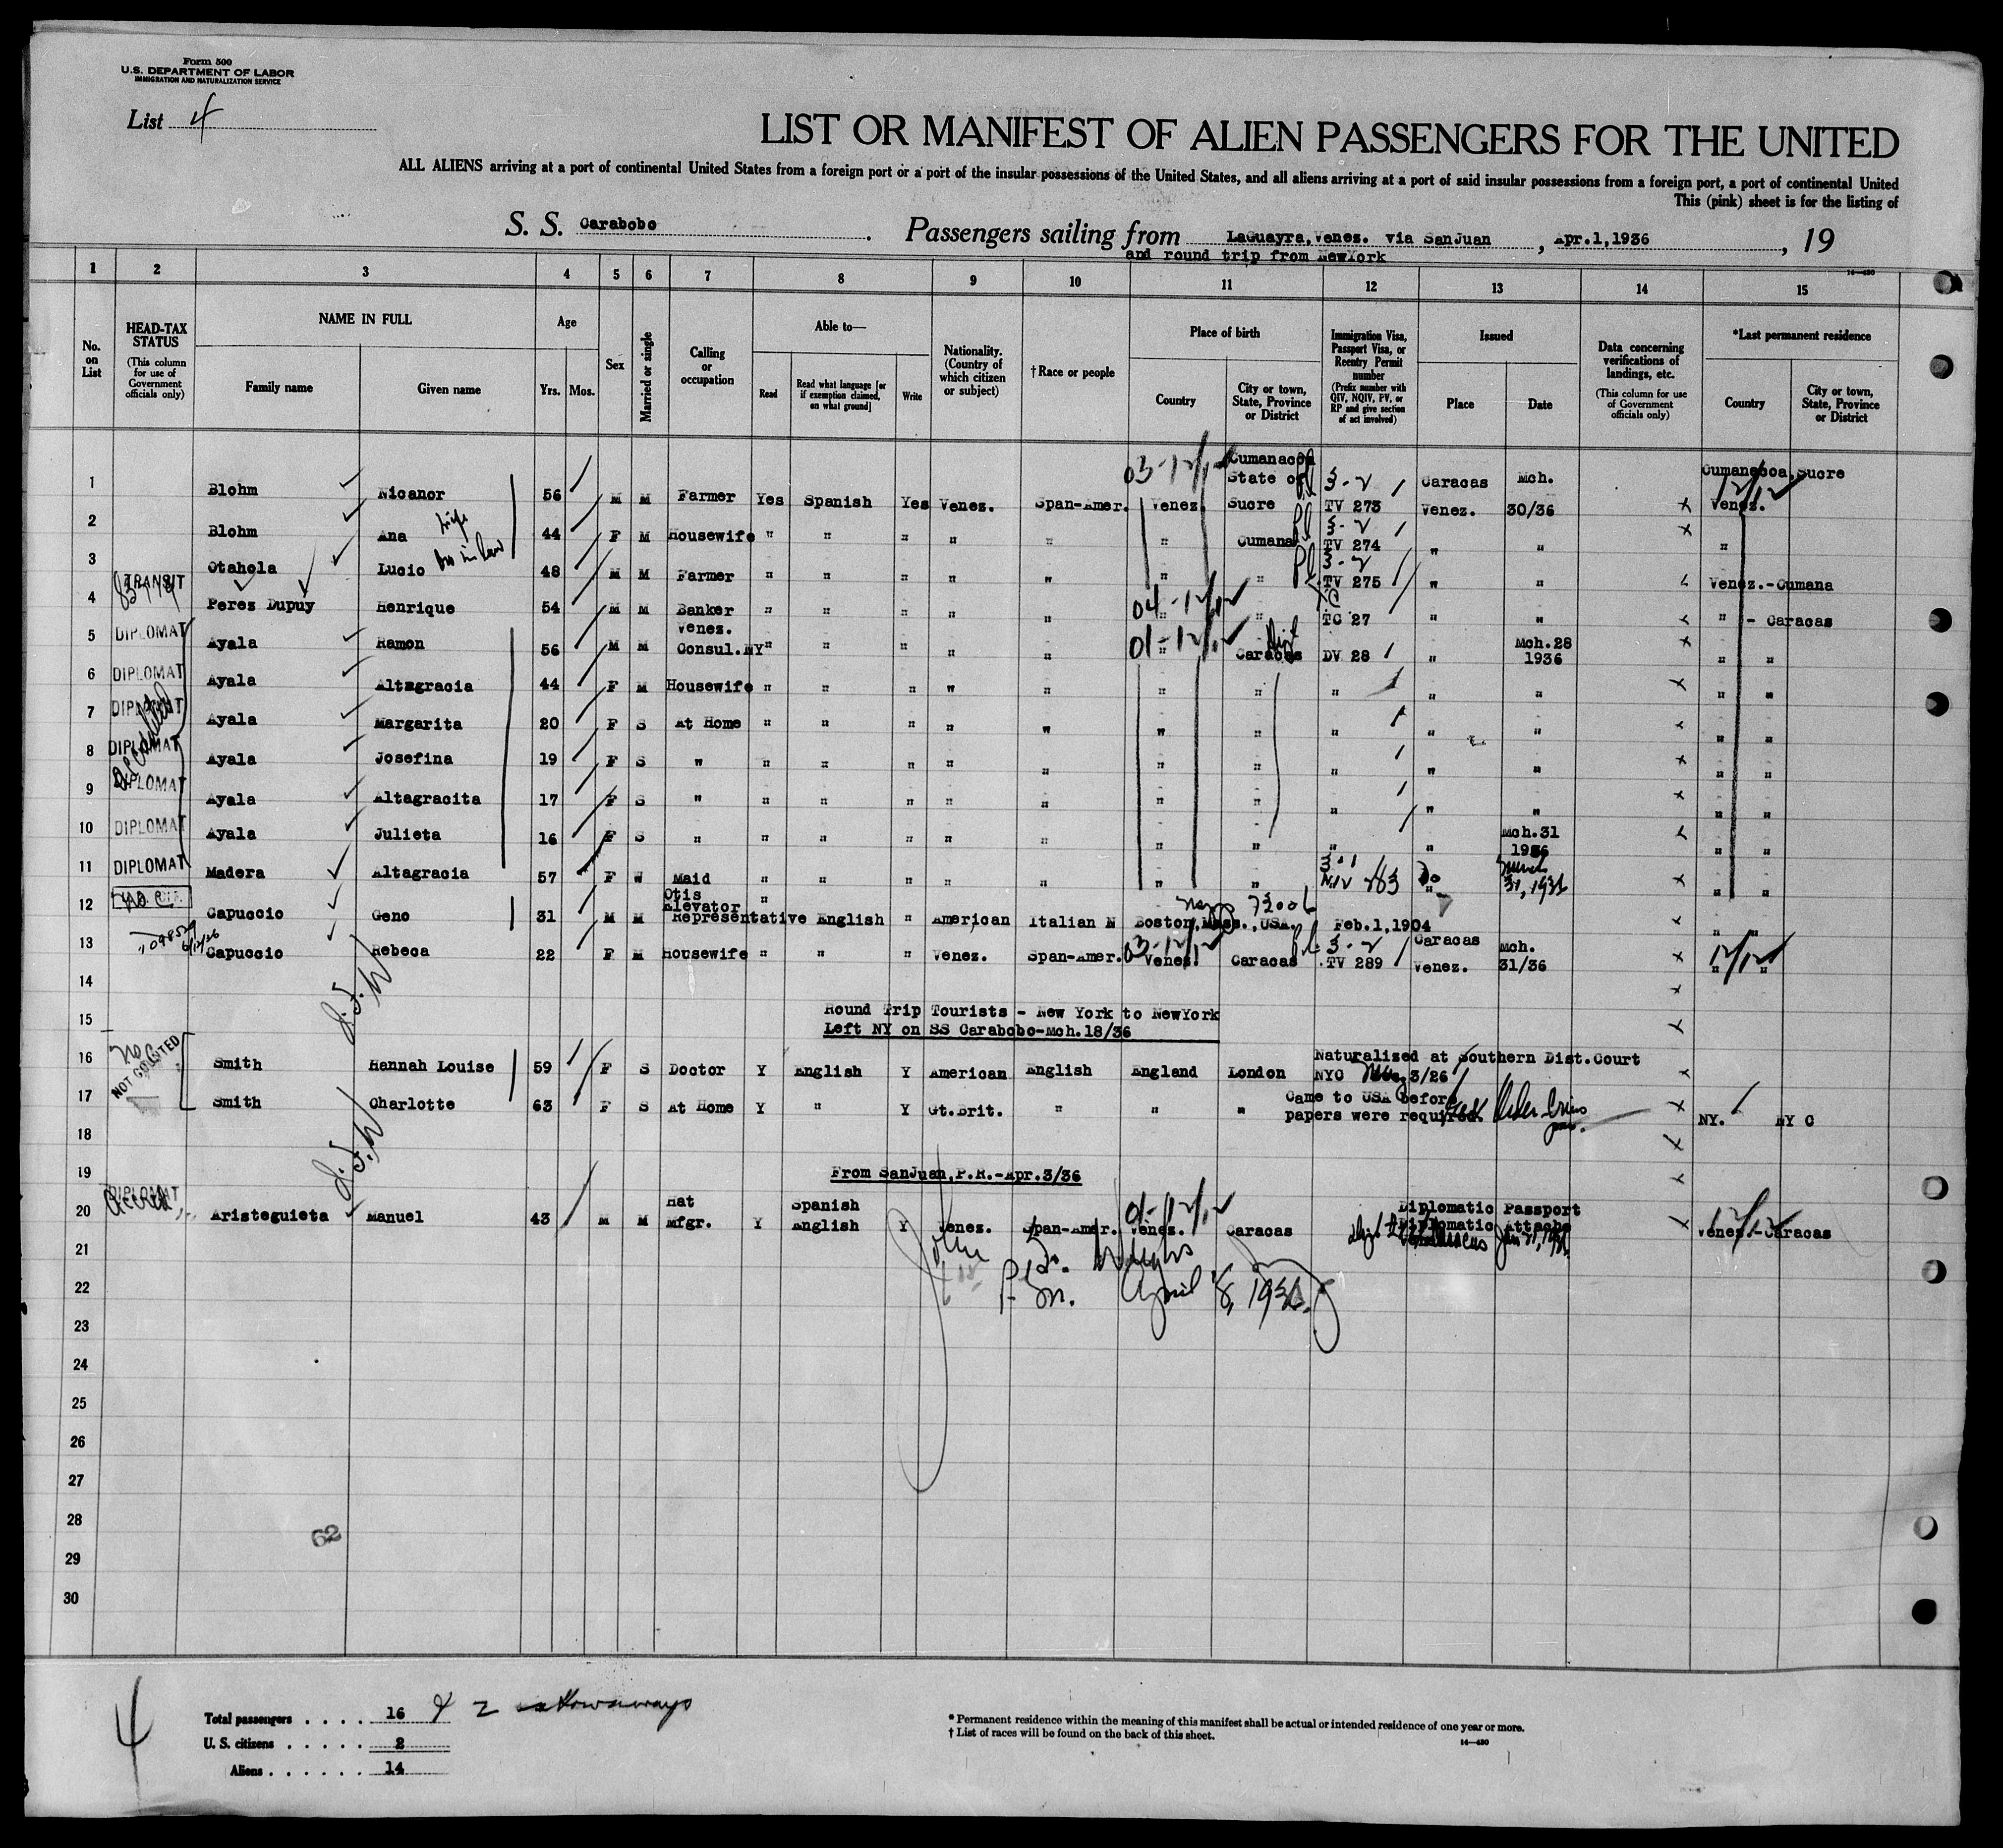 Form 500
U.S. DEPARTMENT OF LABOR
IMMIGRATION AND NATURALIZATION SERVICE
List 4
LIST OR MANIFEST OF ALIEN PASSENGERS FOR THE UNITED
ALL ALIENS arriving at a port of continental United States from a foreign port or a port of the insular possessions of the United States, and all aliens arriving at a port of said insular possessions from a foreign port, a port of continental United
This (pink) sheet is for the listing of
S. S. Carabobo. Passengers sailing from LaGuayra, Venez. via SanJuan, Apr.1,1936, 19
and round trip from NewYork
14—430
1 2 3 4 5 6 7 8 9 10 11 12 13 14 15
No. on List
HEAD-TAX STATUS (This column for use of Government officials only)
NAME IN FULL Family name Given name
Age Yrs. Mos.
Sex
Married or single
Calling or occupation
Able to— Read Read what language [or if exemption claimed, on what ground] Write
Nationality. (Country of which citizen or subject)
†Race or people
Place of birth Country City or town, State, Province or District
Immigration Visa, Passport Visa, or Reentry Permit number (Prefix number with QIV, NQIV, PV, or RP and give section of act involved)
Issued Place Date
Data concerning verifications of landings, etc. (This column for use of Government officials only)
*Last permanent residence Country City or town, State, Province or District
1 Blohm Nicanor 56 M M Farmer Yes Spanish Yes Venez. Span-Amer. 03-12/12 Venez. Cumanacoa State of Sucre 3-2 TV 273 Caracas Venez. Mch. 30/36 Cumanacoa, Sucre Venez. 12/12
2 Blohm Ana wife 44 F M Housewife " " " " " " Cumana 3-2 TV 274 " " "
3 Otahola Lucio bro in law 48 M M Farmer " " " " " " " 3-2 TV 275 " " Venez.-Cumana
4 TRANSIT Perez Dupuy Henrique 54 M M Banker " " " " " 04-12/12 " " TC TC 27 " " " - Caracas
5 DIPLOMAT Ayala Ramon 56 M M Venez. Consul.NY " " " " " 01-12/12 " Caracas DV 28 " Mch.28 1936 " "
6 DIPLOMAT Ayala Altagracia 44 F M Housewife " " " " " " " " " " " "
7 DIPLOMAT Ayala Margarita 20 F S At Home " " " " " " " " " " " "
8 DIPLOMAT Ayala Josefina 19 F S " " " " " " " " " " " " "
9 DIPLOMAT Ayala Altagracita 17 F S " " " " " " " " " " " " "
10 DIPLOMAT Ayala Julieta 16 F S " " " " " " " " " " Mch.31 1936 " "
11 DIPLOMAT Madera Altagracia 57 F W Maid " " " " " " " 3-1 NIV 283 Do " March 31, 1936 " "
12 Capuccio Geno 31 M M Otis Elevator Representative " English " American Italian N Boston, Mass., USA. Feb.1,1904 " "
13 Capuccio Rebeca 22 F M Housewife " " " Venez. Span-Amer. 03-12/12 Venez. Caracas 3-2 TV 289 Caracas Venez. Mch. 31/36 12/12 " "
14
Round Trip Tourists - New York to NewYork
15
Left NY on SS Carabobo-Mch.18/36
16 NOT COLLECTED Smith Hannah Louise 59 F S Doctor Y English Y American English England London Naturalized at Southern Dist.Court NYC 3/26
17 Smith Charlotte 63 F S At Home Y " Y Gt.Brit. " " " Came to USA before papers were required. NY. NY C
18
19
From SanJuan,P.R.-Apr.3/36
20 DIPLOMAT Aristeguieta Manuel 43 M M Hat Mfgr. Y Spanish English Y Venez. Span-Amer. 01-12/12 Venez. Caracas Diplomatic Passport Diplomatic Attache Venez.-Caracas 12/12
21
22 April 8, 1936
23
24
25
26
27
28
29
30
62
4
Total passengers 16 & 2 stowaways
U. S. citizens 2
Aliens 14
* Permanent residence within the meaning of this manifest shall be actual or intended residence of one year or more.
† List of races will be found on the back of this sheet.
14—430